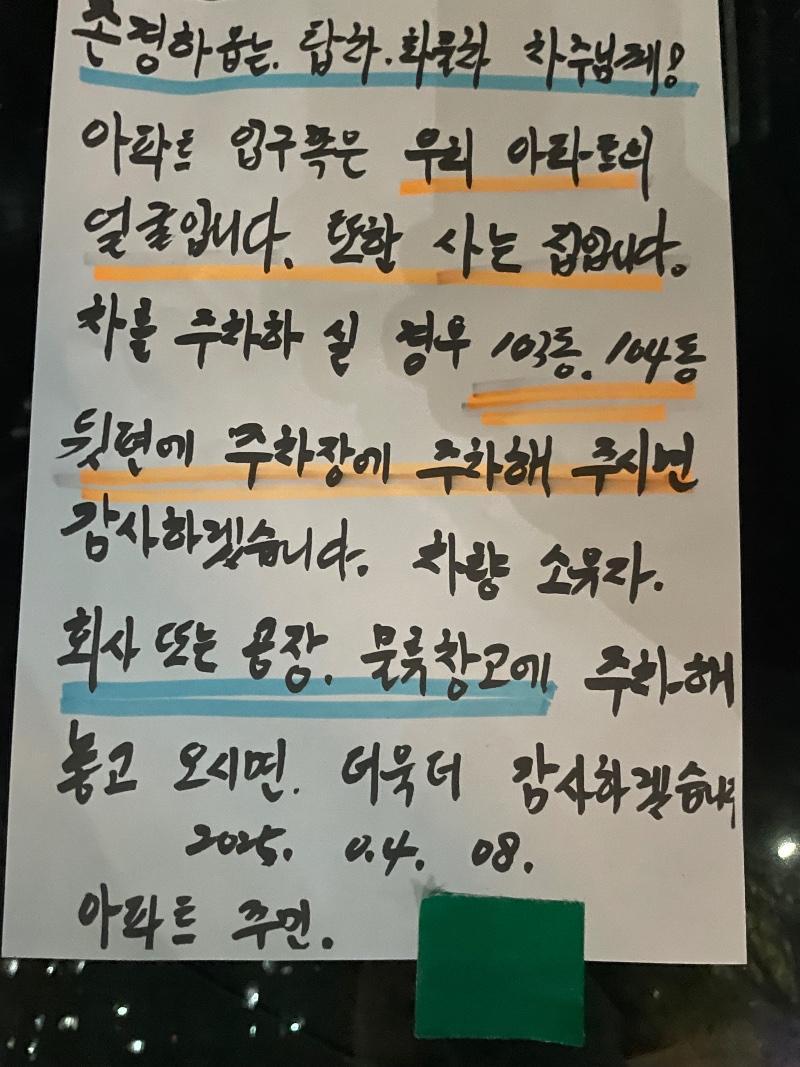 존경하옵는. 탑차. 화물차 차주님께!
아파트 입구쪽은 우리 아파트의
얼굴입니다. 또한 사는 집입니다.
차를 주차하 실 경우 103동. 104동
뒷편에 주차장에 주차해 주시면
감사하겠습니다. 차량 소유자.
회사 또는 공장. 물류창고에 주차해
놓고 오시면. 더욱더 감사하겠습니다
2025. 0.4. 08.
아파트 주민.